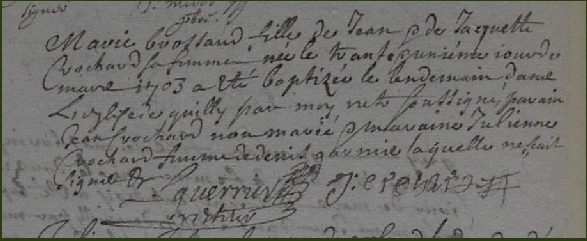 Marie brossaud fille de Jean & de Jaquette
Crochard sa femme née le trante unième jour de
mars 1703 a eté baptizée le lendemain dans
L'eglise de quilly par moy soussigné parain
Jean Crochard non marié & maraine Julienne
Crochard femme de denis garnier laquelle ne scait
signer
Guerrier